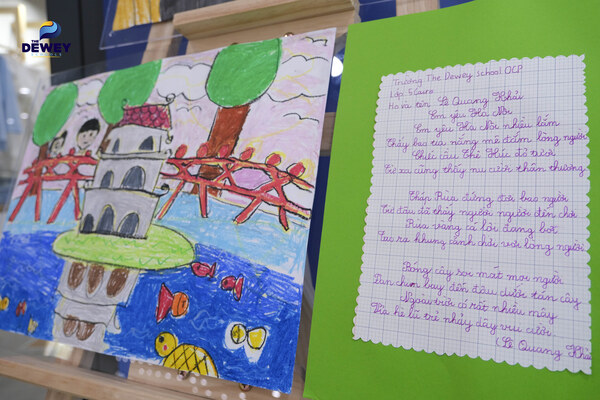 THE
DEWEY
SCHOOLS
Trường The Dewey school OCP
Lớp 5
Họ và tên Lê Quang Khải
Em yêu Hà Nội
Em yêu Hà Nội nhiều lắm
Thấy bao la nắng mê đắm lòng người
Chiếc cầu Thê Húc đỏ tươi
Từ xa cũng thấy nụ cười thân thương
Tháp Rùa đứng đó bao người
Từ đâu đã thấy người người đến chơi
Rùa vàng cá lội đang bơi
Tạo ra khung cảnh chơi vơi lòng người
Bóng cây soi mát mọi người
Đàn chim bay đến đâu dưới tán cây
Ngoài trời có rất nhiều mây
Và hè lũ trẻ nhảy dây vui cười
Lê Quang Khải